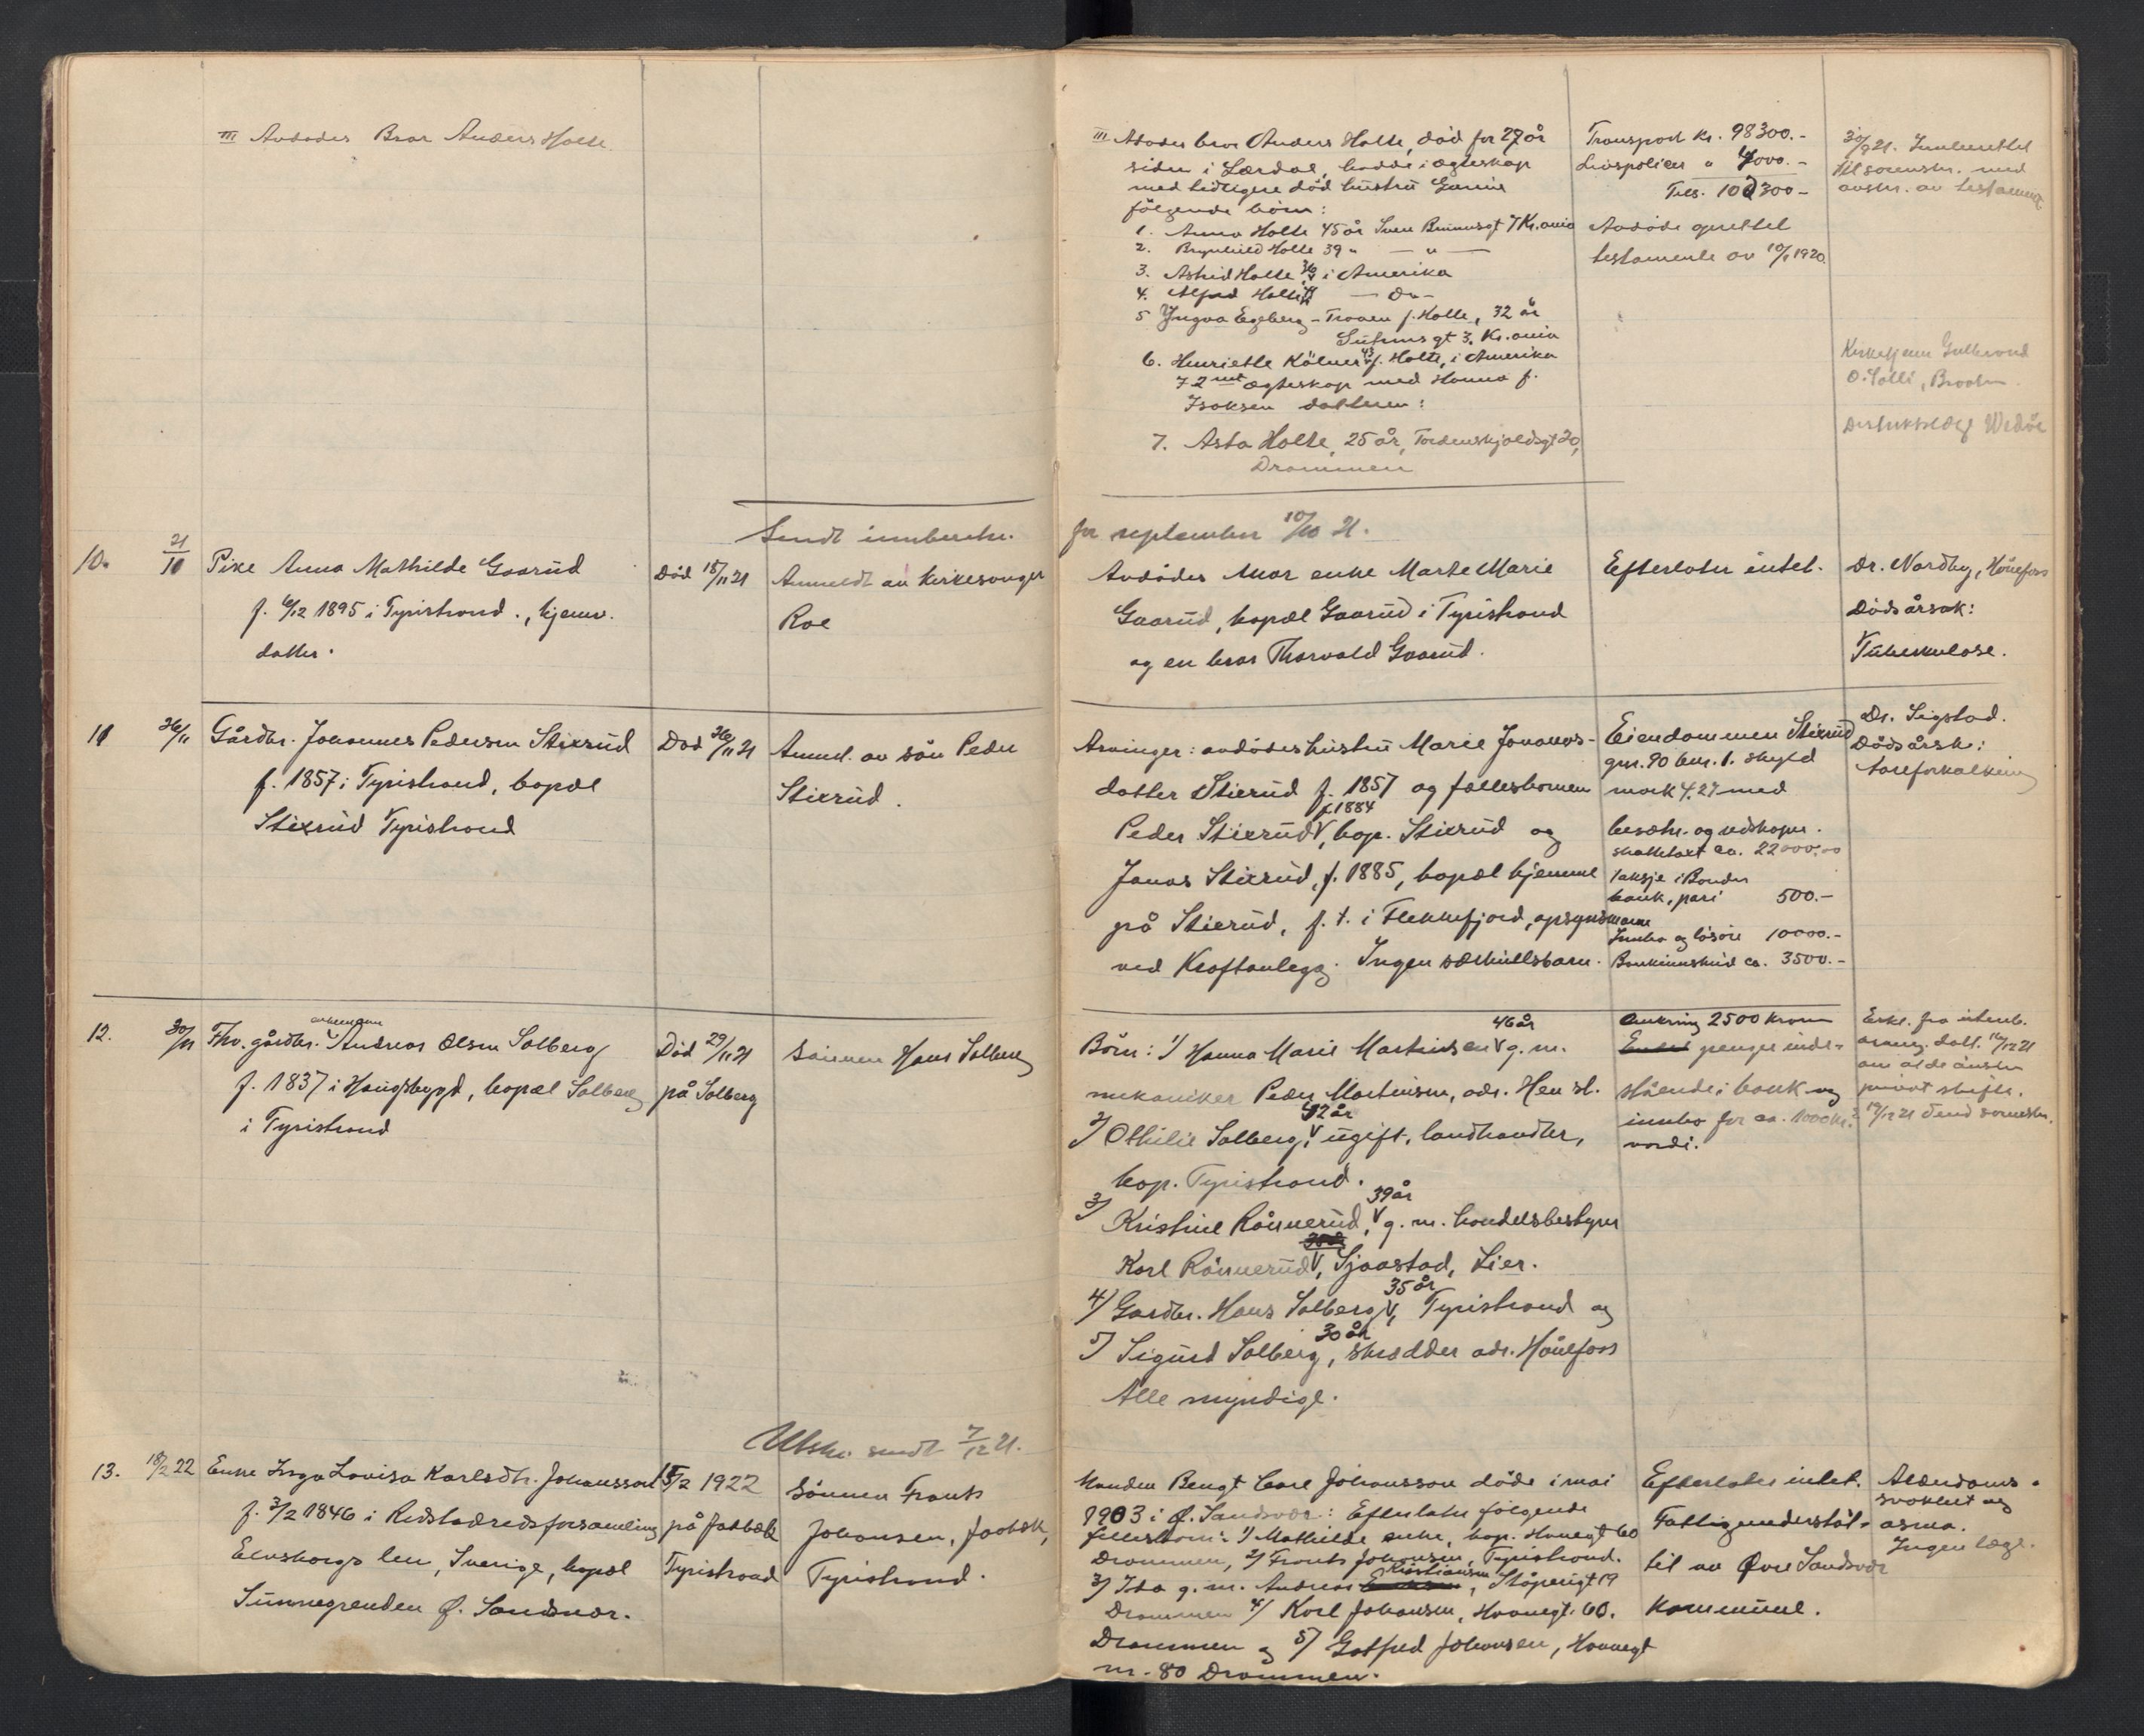 III Avdødes Bror Anders Holte
III Avdødes bror Anders Holte, død for 27 år
siden i Lærdal, hadde i ægteskap
med tidligere død hustru
følgende børn:
1. Anna Holte 45 år Sven Bruunsgt 7 Kr.ania
2. Brynhild Holte 39 " — " —
3. Astrid Holte 36 i Amerika
4. Alfred Holte — Do —
5 Yngva Egeberg - Traaen f. Holte, 32 år
gt 3. Kr.ania
6. Henriette Kölner 43 f. Holte, i Amerika
I 2net ægteskap med Hanna f.
Isaksen datteren:
7. Asta Holte, 25 år, Tordenskjoldsgt 20,
Drammen
Transport kr. 98300.-
Livspolicer " 4000.-
Tils. 102300-
Avdøde oprettet
testamente av 10/1 1920.
30/9 21. Innberettet
til sorenskr. med
avskr. av testamente
Kirketjener Gulbrand
O. Solli, Bråten
Distriktslæge Wedøe
Sendt innberetn.
for september 10/10 21.
10. 21/11
Pike Anna Mathilde Gaarud
f. 6/12 1895 i Tyristrand., hjemv.
datter.
Død 18/11 21
Anmeldt av kirkesanger
Roe
Avdødes mor enke Marte Marie
Gaarud, bopæl Gaarud i Tyristrand
og en bror Thorvald Gaarud.
Efterlater intet.
Dr. Nordby, Hönefoss
Dødsårsak:
Tuberkulose.
11 26/11
Gårdbr. Johannes Pedersen Stixrud
f. 1857 i Tyristrand, bopæl
Stixrud Tyristrand
Død 26/11 21
Anmel. av sön Peder
Stixrud.
Arvinger: avdødes hustru Marie Jonanns-
datter Stixrud f. 1857 og fællesbornen
f. 1884
Peder Stixrud V, bop. Stixrud og
Jonas Stixrud, f. 1885, bopæl hjemme
på Stixrud, f. t. i Flekkefjord, opsynsmann
ved Kraftanlegg. Ingen særkullsbarn.
Eiendommen Stixrud
gnr. 90 bnr. 1. skyld
mark 4.27 med
besætn. og redskaper.
skattetaxt ca. 22000,00
1 aksje i Bonder
bank, pari 500.-
Innbo og løsöre 10000.-
Bankinnskud ca. 3500.-
Dr. Sigstad.
Dödsårsk:
åreforkalkning
12. 30/11
enkemann
Fhv. gårdbr. V Andreas Olsen Solberg
f. 1837 i Haugsbygd, bopæl Solberg
i Tyristrand
Död 29/11 21
på Solberg
Sönnen Hans Solberg
46 år
Börn: 1/ Hanna Marie Martinsen V g. m.
mekaniker Peder Martinsen, adr. Hen st.
42 år
2/ Othilie Solberg, V ugift, landhandler,
bop. Tyristrand.
39 år
3/ Kristine Rönnerud, V g. m. handelsbestyrer
Karl Rönnerud V, Sjaastad, Lier.
35 år
4/ Gardbr. Hans Solberg V, Tyristrand og
30 år
5/ Sigurd Solberg, skrædder adr. Hönefoss
Alle myndige.
omkring 2500 kroner
penger inde-
stående i bank og
innbo for ca. 1000 kr.
verdi.
Erkl. fra
arving. datt. 16/12 21
om at de önsker
privat skifte.
19/12 21 send sorenskr.
Utskr. sendt 7/12 21.
13. 18/2 22
Enke Inga Lovisa Karlsdtr. Johansson
f. 3/2 1846 i Redstadredsforsamling
Elvsborgs len, Sverige, bopæl
Sunnegrenden Ø. Sandsvær.
15/2 1922
på Jonbæk
Tyristrand
Sönnen Frants
Johansen, Jonbæk,
Tyristrand.
Manden Bengt Carl Johansson döde i mai
1903 i Ø. Sandsvær: Efterlater følgende
fellesbarn: 1/ Mathilde enke, bop. Havnegt 60
Drammen, 2/ Frants Johansen, Tyristrand.
Kristiansen
3/ Ida g. m. Andreas, Støperigt 19
Drammen 4/ Karl Johansen, Havnegt. 60.
Drammen og 5/ Gotfred Johansen, Havnegt
nr. 80 Drammen.
Efterlater intet.
Fattigunderstöt-
tet av Øvre Sandsvær
Kommune.
Alderdoms-
svakhet og
asma.
Ingen læge.